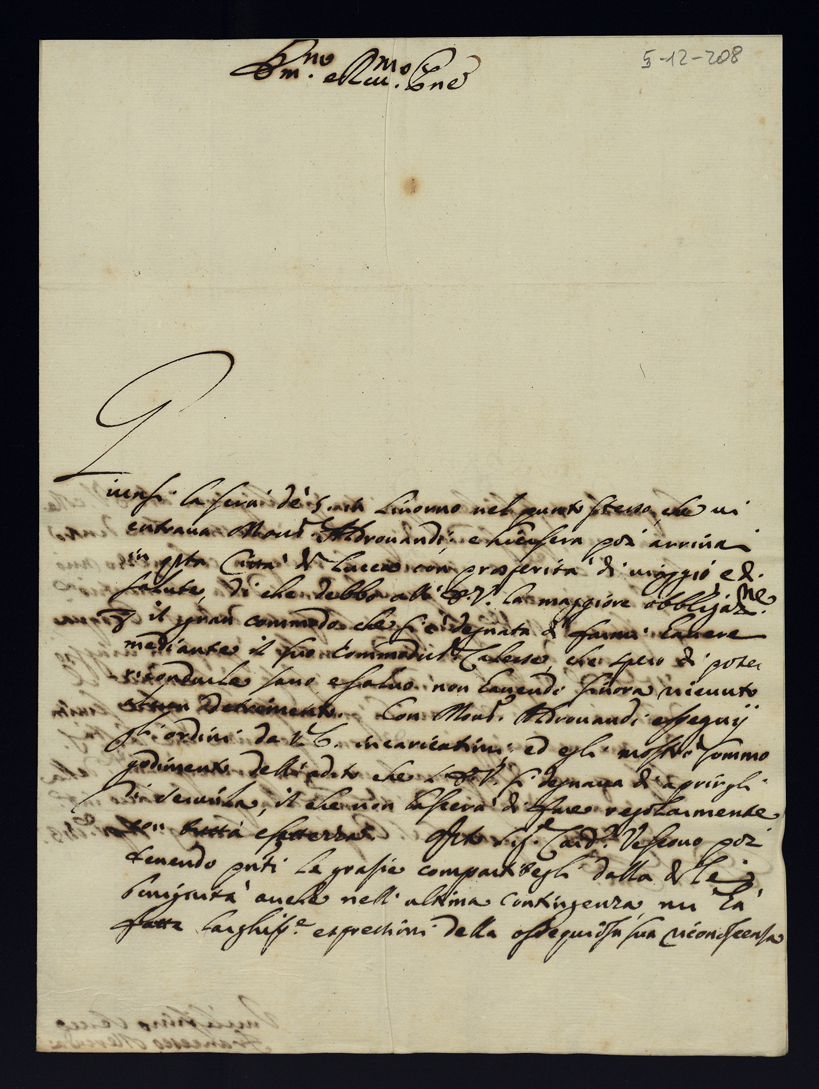 5-12-208
Em.mo e Rev.mo Pne
Giunsi la sera de 5. in Livorno nel punto stesso, che vi
entrava Mons.r Aldrovandi, e hiersera poi arrivai
in q̃sta Città di Lucca con prosperità di viaggio e di
salute, di che debbo all' E. V. la maggiore obbligaz.ne
il gran commodo che si è degnata di farmi havere
mediante il suo Calesse, che spero di poter
rimandarle sano e salvo non havendo finora ricevuto
alcun detrimento. Con Mons.r Aldrovandi esseguij
gli ordini da V. E. incaricatimi ed egli mostrò sommo
godimento dell' adito che l' E. V. si degnava di aprirgli
di servirla, il che non lascerà di fare regolarmente
con tutta esattezza. Sig.r Card.le Vescovo poi
tenendo pn̄ti le grazie compartitegli dalla di lei
benignità anche nell' ultima contingenza mi hà
fatte larghiss.e espressioni della ossequiosiss.a sua riconoscenza